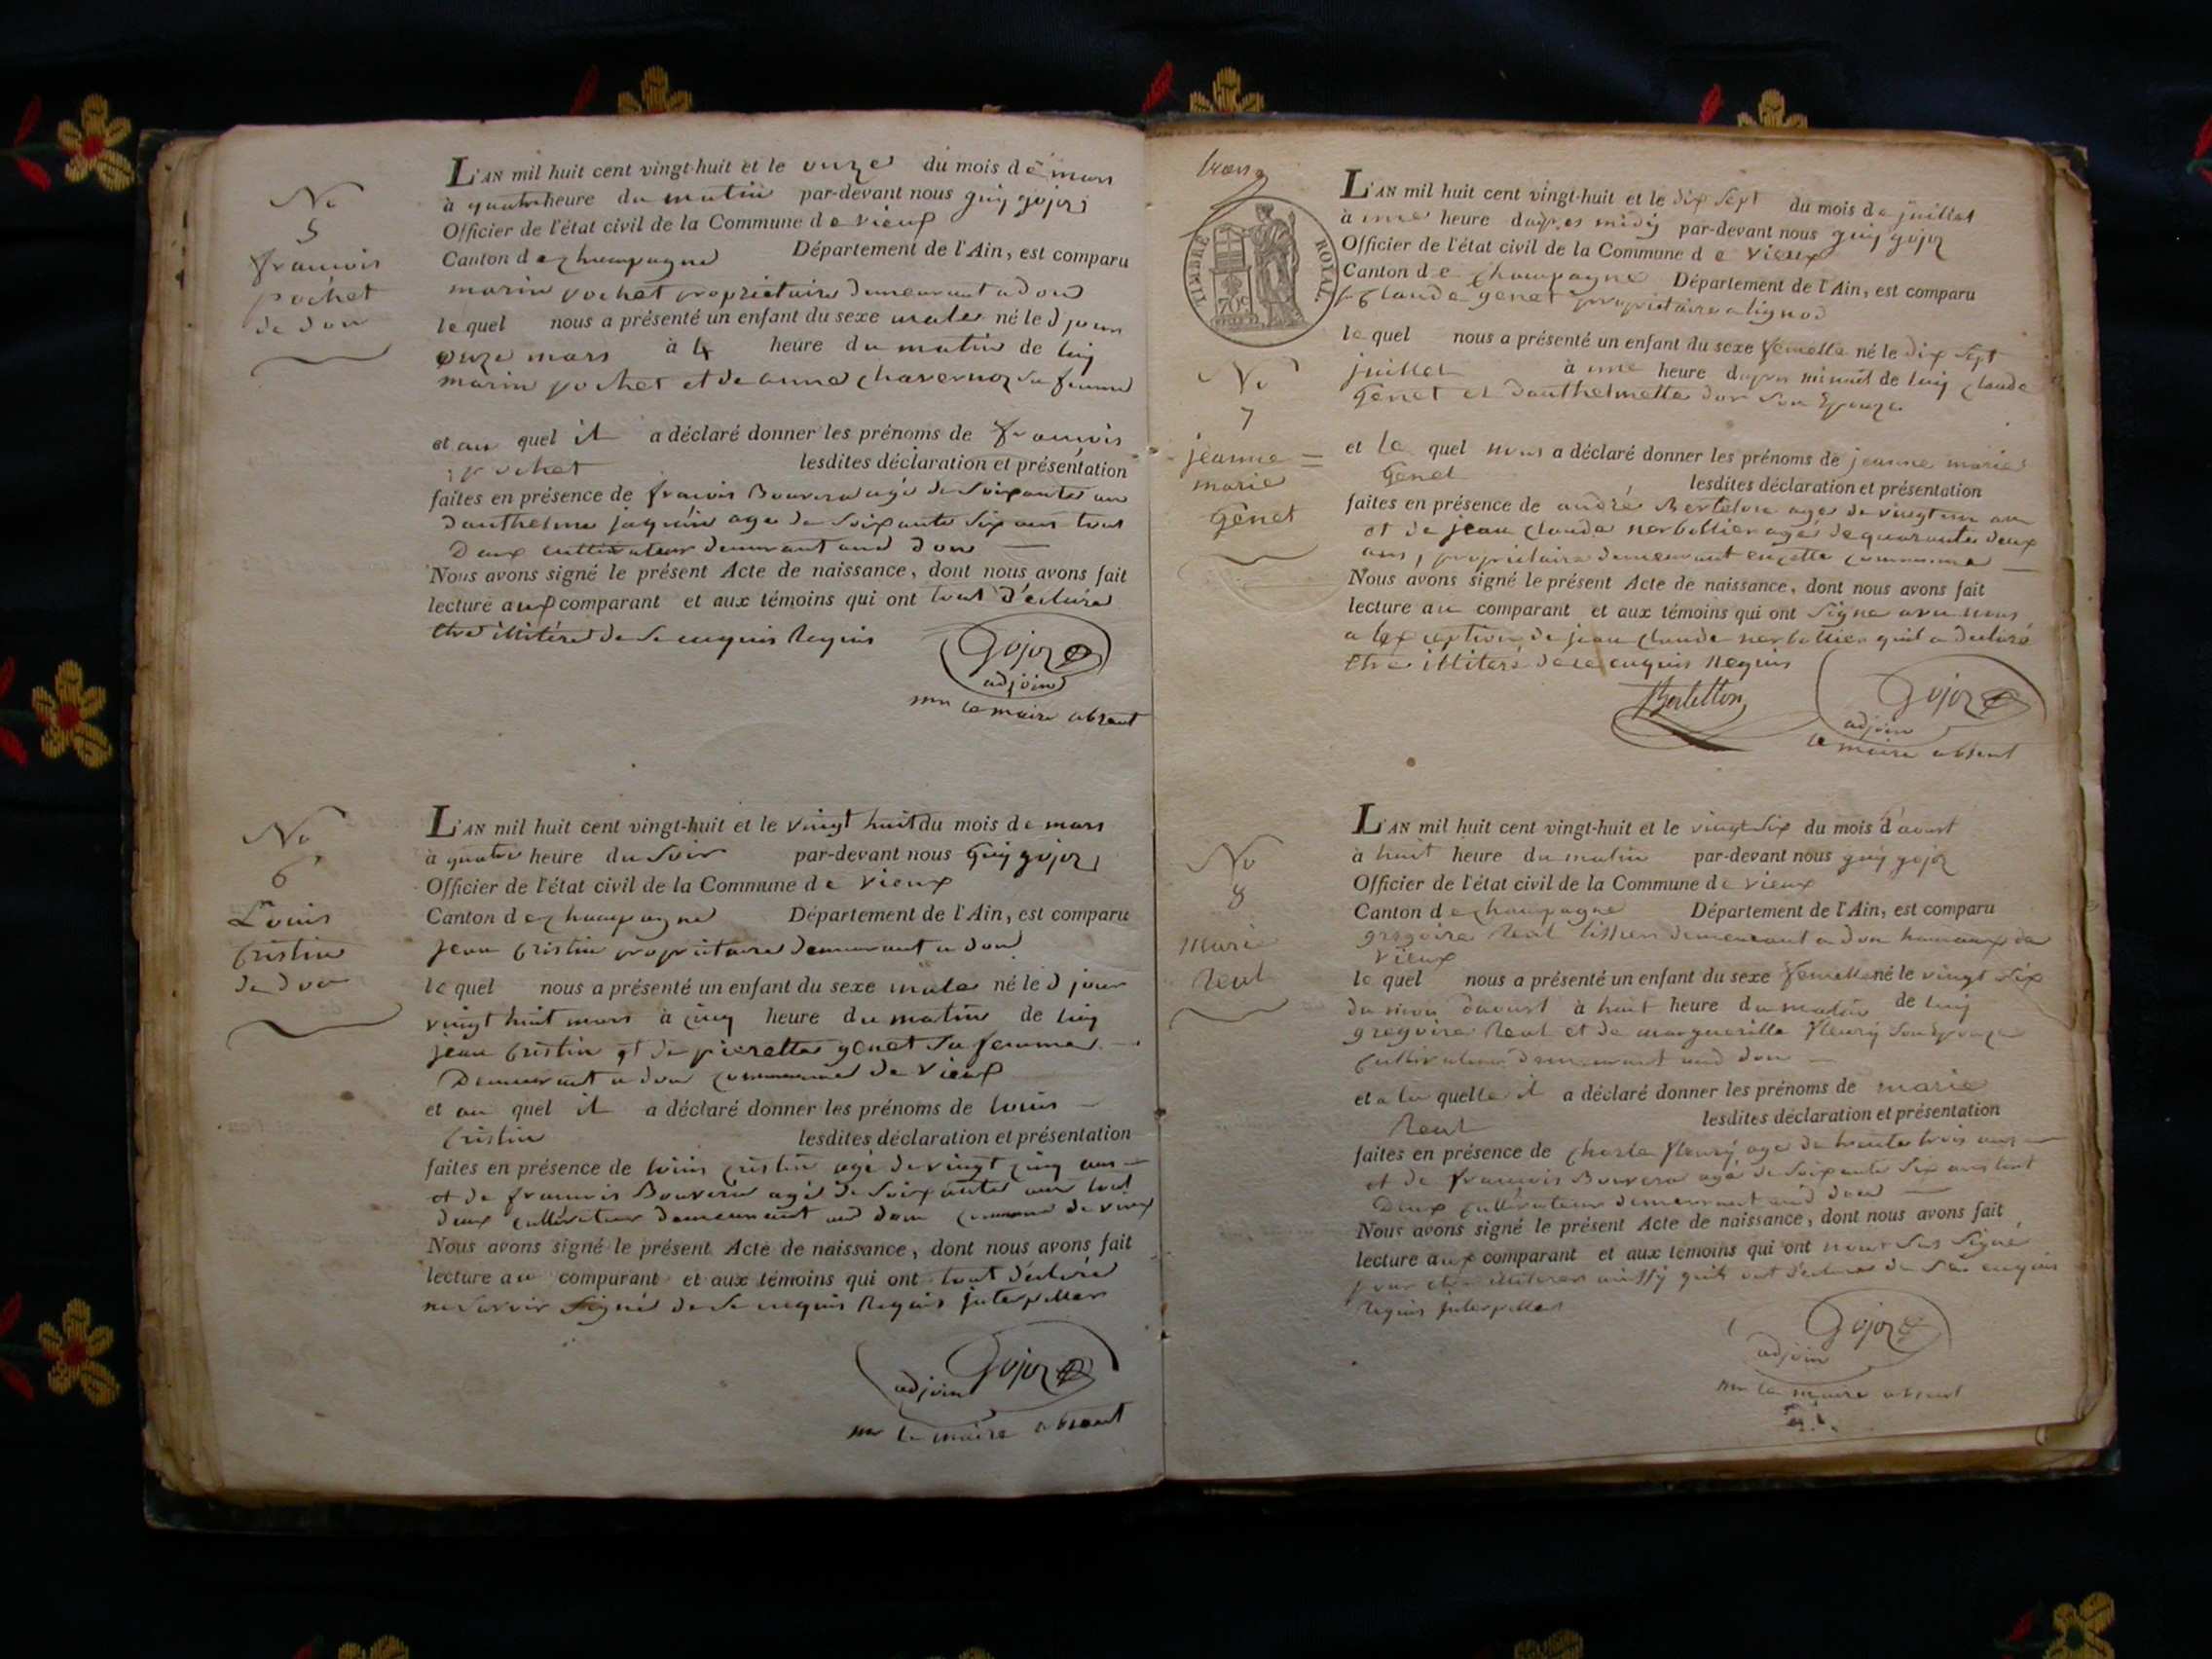 No
5
francois
pochet
de don
L'AN mil huit cent vingt-huit et le onze du mois de mars
à quatre heure du matin par-devant nous guy gojoz
Officier de l'état civil de la Commune de vieux
Canton de champagne Département de l'Ain, est comparu
marin pochet propriétaire demeurant a don
lequel nous a présenté un enfant du sexe male né le d jour
onze mars à 4 heure du matin de luy
marin pochet et de anne chavernoz sa femme
et au quel il a déclaré donner les prénoms de francois
pochet lesdites déclaration et présentation
faites en présence de francois Bouvera agé de soixante an
danthelme jaquin age de soixante six ans tout
Deux cultivateur demurant aud don
Nous avons signé le présent Acte de naissance, dont nous avons fait
lecture aux comparant et aux témoins qui ont tout déclaré
etre illitéré de ce enquis Requis
Gojoz
adjoint
mr le maire absent
No
6
Louis
Cristin
de don
L'AN mil huit cent vingt-huit et le vingt huit du mois de mars
à quatre heure du soir par-devant nous Guy gojoz
Officier de l'état civil de la Commune de vieux
Canton de champagne Département de l'Ain, est comparu
jean Cristin propriétaire demeurant a don
lequel nous a présenté un enfant du sexe male né le d jour
vingt huit mars à cinq heure du matin de luy
jean Cristin et de pierrette genet sa femme
Demeurant a don commune de vieux
et au quel il a déclaré donner les prénoms de louis
Cristin lesdites déclaration et présentation
faites en présence de louis cristin agé de vingt cinq ans
et de francois Bouvera agé de soixante ans tout
deux cultivateur demeurant aud don commune de vieux
Nous avons signé le présent Acte de naissance, dont nous avons fait
lecture au comparant et aux témoins qui ont tout déclaré
ne savoir signé de ce enquis Requis interpeller
Gojoz
adjoint
mr le maire absent
TIMBRE ROYAL.
No
7
jeanne =
marie
Genet
L'AN mil huit cent vingt-huit et le dix sept du mois de juillet
à une heure dapres midy par-devant nous guy gojoz
Officier de l'état civil de la Commune de vieux
Canton de champagne Département de l'Ain, est comparu
Claude genet propriétaire a lignod
lequel nous a présenté un enfant du sexe femelle né le dix sept
juillet à une heure dapres minuit de luy claude
Genet et danthelmette dor son Epouze
et le quel nous a déclaré donner les prénoms de jeanne marie
Genet lesdites déclaration et présentation
faites en présence de andré Bertelon age de vingt un an
et de jean claude narbollier agé de quarante deux
ans, propriétaire demeurant en cette commune
Nous avons signé le présent Acte de naissance, dont nous avons fait
lecture au comparant et aux témoins qui ont signe avec nous
a lexception de jean claude narbollier quil a declaré
etre illiteré de ce enquis Requis
Bertellon
Gojoz
adjoint
le maire absent
No
8
marie
L'AN mil huit cent vingt-huit et le vingt six du mois d'aoust
à huit heure du matin par-devant nous guy gojoz
Officier de l'état civil de la Commune de vieux
Canton de champagne Département de l'Ain, est comparu
gregoire demeurant a don hameaux de
vieux
le quel nous a présenté un enfant du sexe femelle né le vingt six
du mois daoust à huit heure du matin de luy
gregoire et de margueritte fleury son Epouze
cultivateur demeurant aud don
et a la quelle il a déclaré donner les prénoms de marie
lesdites déclaration et présentation
faites en présence de charle fleury age de trente trois ans
et de francois Bouvera agé de soixante six ans tout
Deux cultivateur demeurant aud don
Nous avons signé le présent Acte de naissance, dont nous avons fait
lecture aux comparant et aux témoins qui ont signé
pour etre illiteres quils ont déclaré de enquis
Requis interpeller
Gojoz
adjoint
mr le maire absent